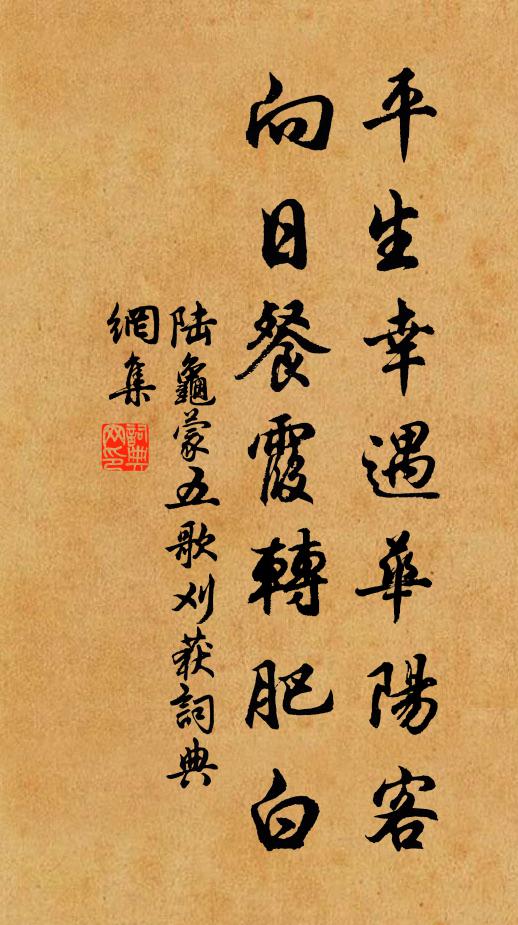 平生幸遇華陽客
向日餐霞轉肥白
陆龜蒙五歌刈获詞典
網集
詞典
网印